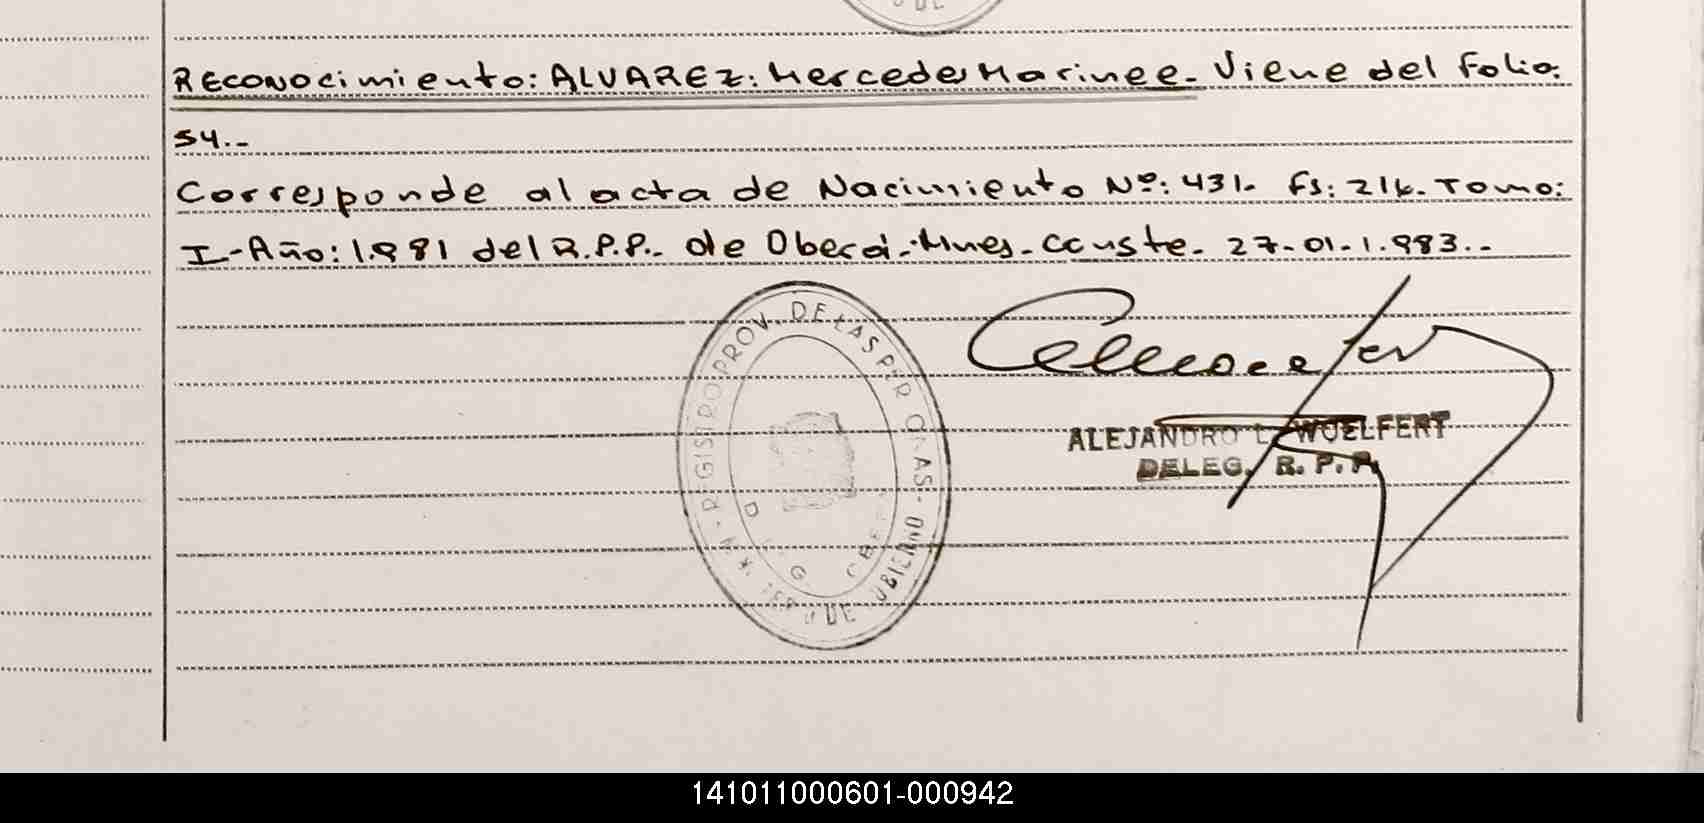 RECONOCIMIENTO: ALVAREZ: Mercedes Marinee. Viene del Folio:
54.-
Corresponde al acta de Nacimiento Nº: 431. Fs: 216. Tomo:
I-Año: 1.981 del R.P.P.. de Oberá-Mnes. Conste. 27-01-1.983..
REGISTRO PROV. DE LAS PERSONAS
ALEJANDRO L. WUELFERT
DELEG. R. P. P.
141011000601-000942